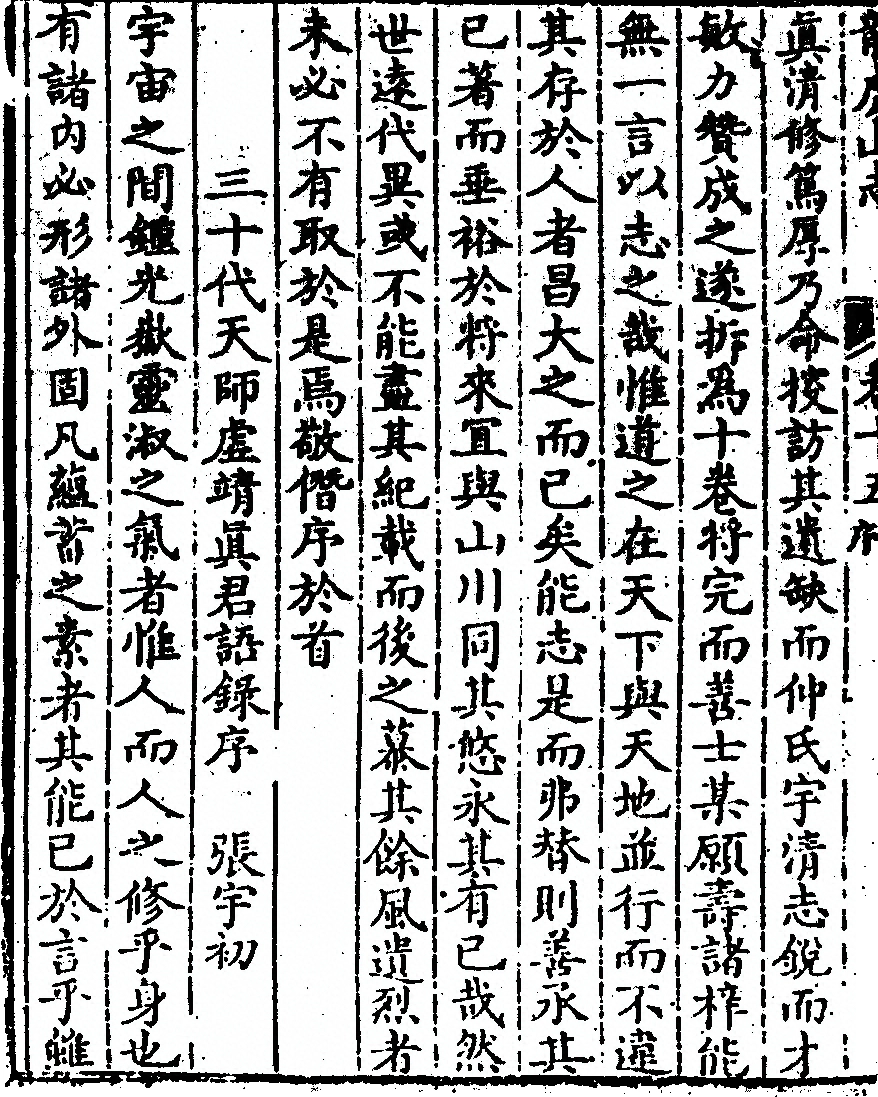 龍虎山志 卷十五序
眞清修篤厚乃命挍訪其遺缺而仲氏宇清志銳而才
敏力贊成之遂拆爲十卷将完而善士某願壽諸梓能
無一言以志之哉惟道之在天下與天地並行而不違
其存於人者昌大之而已矣能志是而弗替則善承其
已著而垂裕於将來冝與山川同其悠永其有已哉然
世遠代異或不能盡其紀載而後之慕其餘風遺烈者
未必不有取於是焉敬僭序於首
三十代天師虛靖眞君語錄序 張宇初
宇宙之間鍾光嶽靈淑之氣者惟人而人之修乎身也
有諸内必形諸外固凡蘊蓄之素者其能已於言乎雖